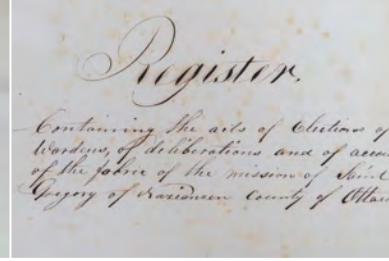 Register.
Containing the acts of Elections of
Wardens, of deliberations and of accou
of the fabric of the mission of Saint
Gregory of County of Ottaw